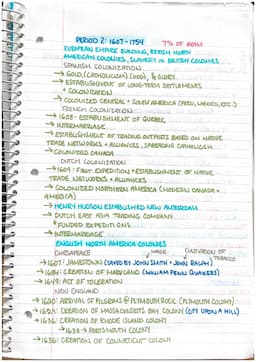 PERIOD 2: 1607-1754 7% OF EXAM
EUROPEAN EMPIRE BUILDING, BRITISH NORTH
AMERICAN COLONIES, SLAVERY IN BRITISH COLONIES
SPANISH COLONIZATION
→ GOLD, (CATHOLICISM) (GOD), & GLORY
→ ESTABLISHMENT OF LONG-TERM SETTLEMENTS
+ COLONIZATION
→ COLONIZED CENTRAL + SOUTH AMERICA (PERU, MEXICO, ETC.)
FRENCH COLONIZATION
→ 1608: ESTABLISHMENT OF QUEBEC
→ INTERMARRIAGE
→ ESTABLISHMENT OF TRADING OUTPOSTS BASED ON NATIVE
TRADE NETWORKS + ALLIANCES, SPREADING CATHOLICISM
→ COLONIZED CANADA
DUTCH COLONIZATION
→ 1609: FIRST EXPEDITION + ESTABLISHMENT OF NATIVE
TRADE NETWORKS + ALLIANCES
→ COLONIZED NORTHERN AMERICA (MODERN CANADA +
AMERICA)
→ HENRY HUDSON ESTABLISHED NEW AMSTERDAM
→ DUTCH EAST ASIA TRADING COMPANY
FUNDED EXPEDITIONS
→ INTERMARRIAGE
ENGLISH NORTH AMERICA COLONIES
CHESAPEAKE CULTIVATION OF
TOBACCO
→ 1607: JAMESTOWN (SAVED BY JOHN SMITH + JOHN ROLPH)
→ 1634: CREATION OF MARYLAND (WILLIAM PENN QUAKERS)
→ 1649: ACT OF TOLERATION
NEW ENGLAND
→ 1620: ARRIVAL OF PILGRIMS @ PLYMOUTH ROCK (PLYMOUTH COLONY)
→ CREATION OF MASSACHUSETTS BAY COLONY (CITY UPON A HILL)
→ 1636: CREATION OF RHODE ISLAND COLONY
→ 1638 → PORTSMOUTH COLONY
→ 1636: CREATION OF CONNECTICUT COLONY